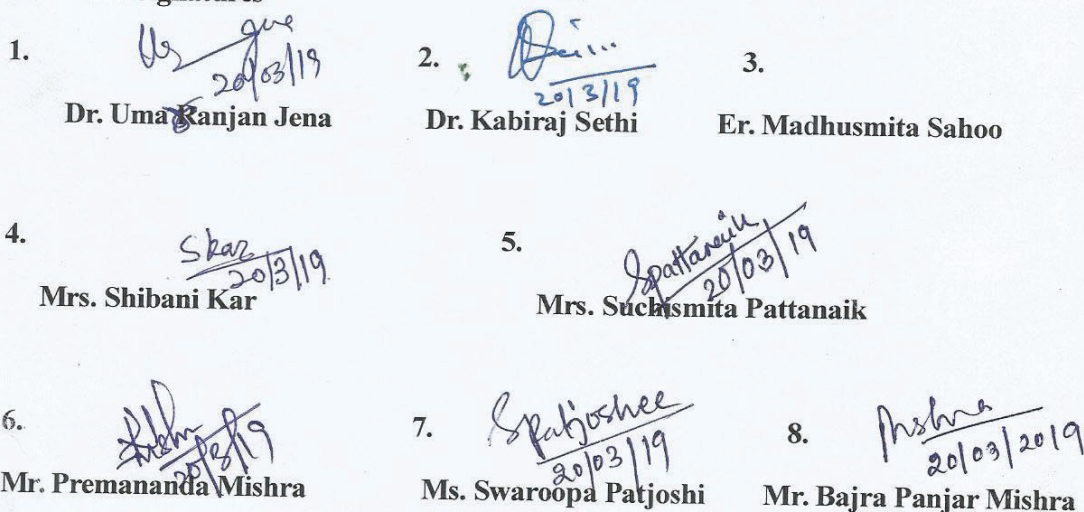 1.
20/03/19
Dr. Uma Ranjan Jena
2.
20/3/19
Dr. Kabiraj Sethi
3.
Er. Madhusmita Sahoo
4.
Skar
20/3/19
Mrs. Shibani Kar
5.
Spattanaik
20/03/19
Mrs. Suchismita Pattanaik
6.
20/3/19
Mr. Premananda Mishra
7.
Spatjoshee
20/03/19
Ms. Swaroopa Patjoshi
8.
20/03/2019
Mr. Bajra Panjar Mishra